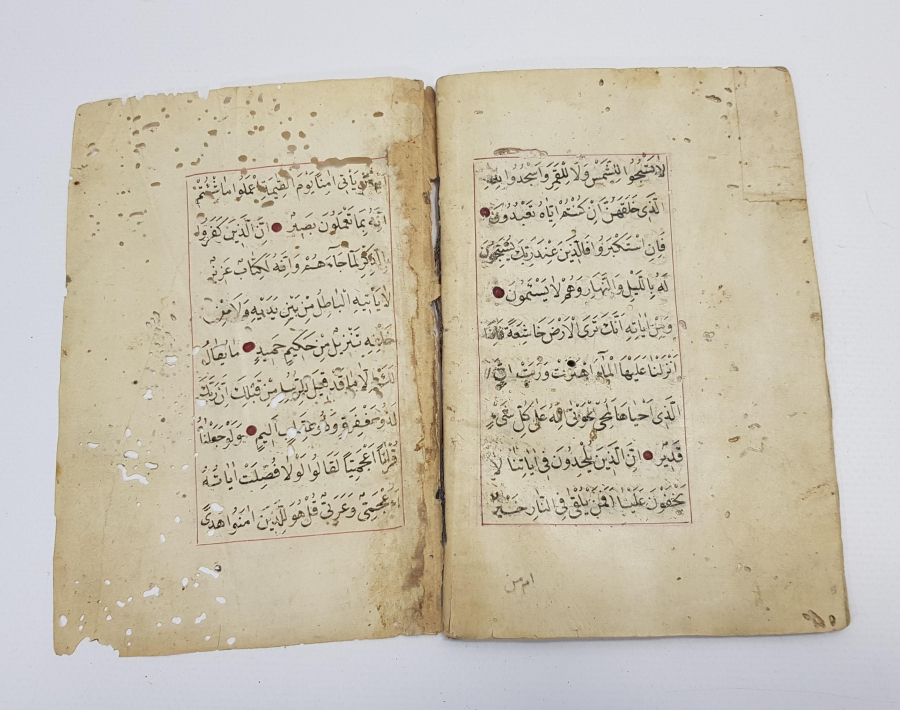 لا تسجدوا للشمس ولا للقمر واسجدوا لله
الذى خلقهن ان كنتم اياه تعبدون
فان استكبروا فالذين عند ربك يسبحون
له بالليل والنهار وهم لا يسئمون
ومن اياته انك ترى الارض خاشعة فاذا
انزلنا عليها الماء اهتزت وربت ان
الذى احياها لمحى الموتى انه على كل شىء
قدير ان الذين يلحدون فى اياتنا لا
يخفون علينا افمن يلقى فى النار خير
ام من
يأتى امنا يوم القيمة اعملوا ما شئتم
انه بما تعملون بصير ان الذين كفروا
بالذكر لما جاءهم وانه لكتاب عزيز
لا يأتيه الباطل من بين يديه ولا من
خلفه تنزيل من حكيم حميد ما يقال
لك الا ما قد قيل للرسل من قبلك ان ربك
لذو مغفرة وذو عقاب اليم ولو جعلناه
قرانا اعجميا لقالوا لولا فصلت اياته
ءاعجمى وعربى قل هو للذين امنوا هدى